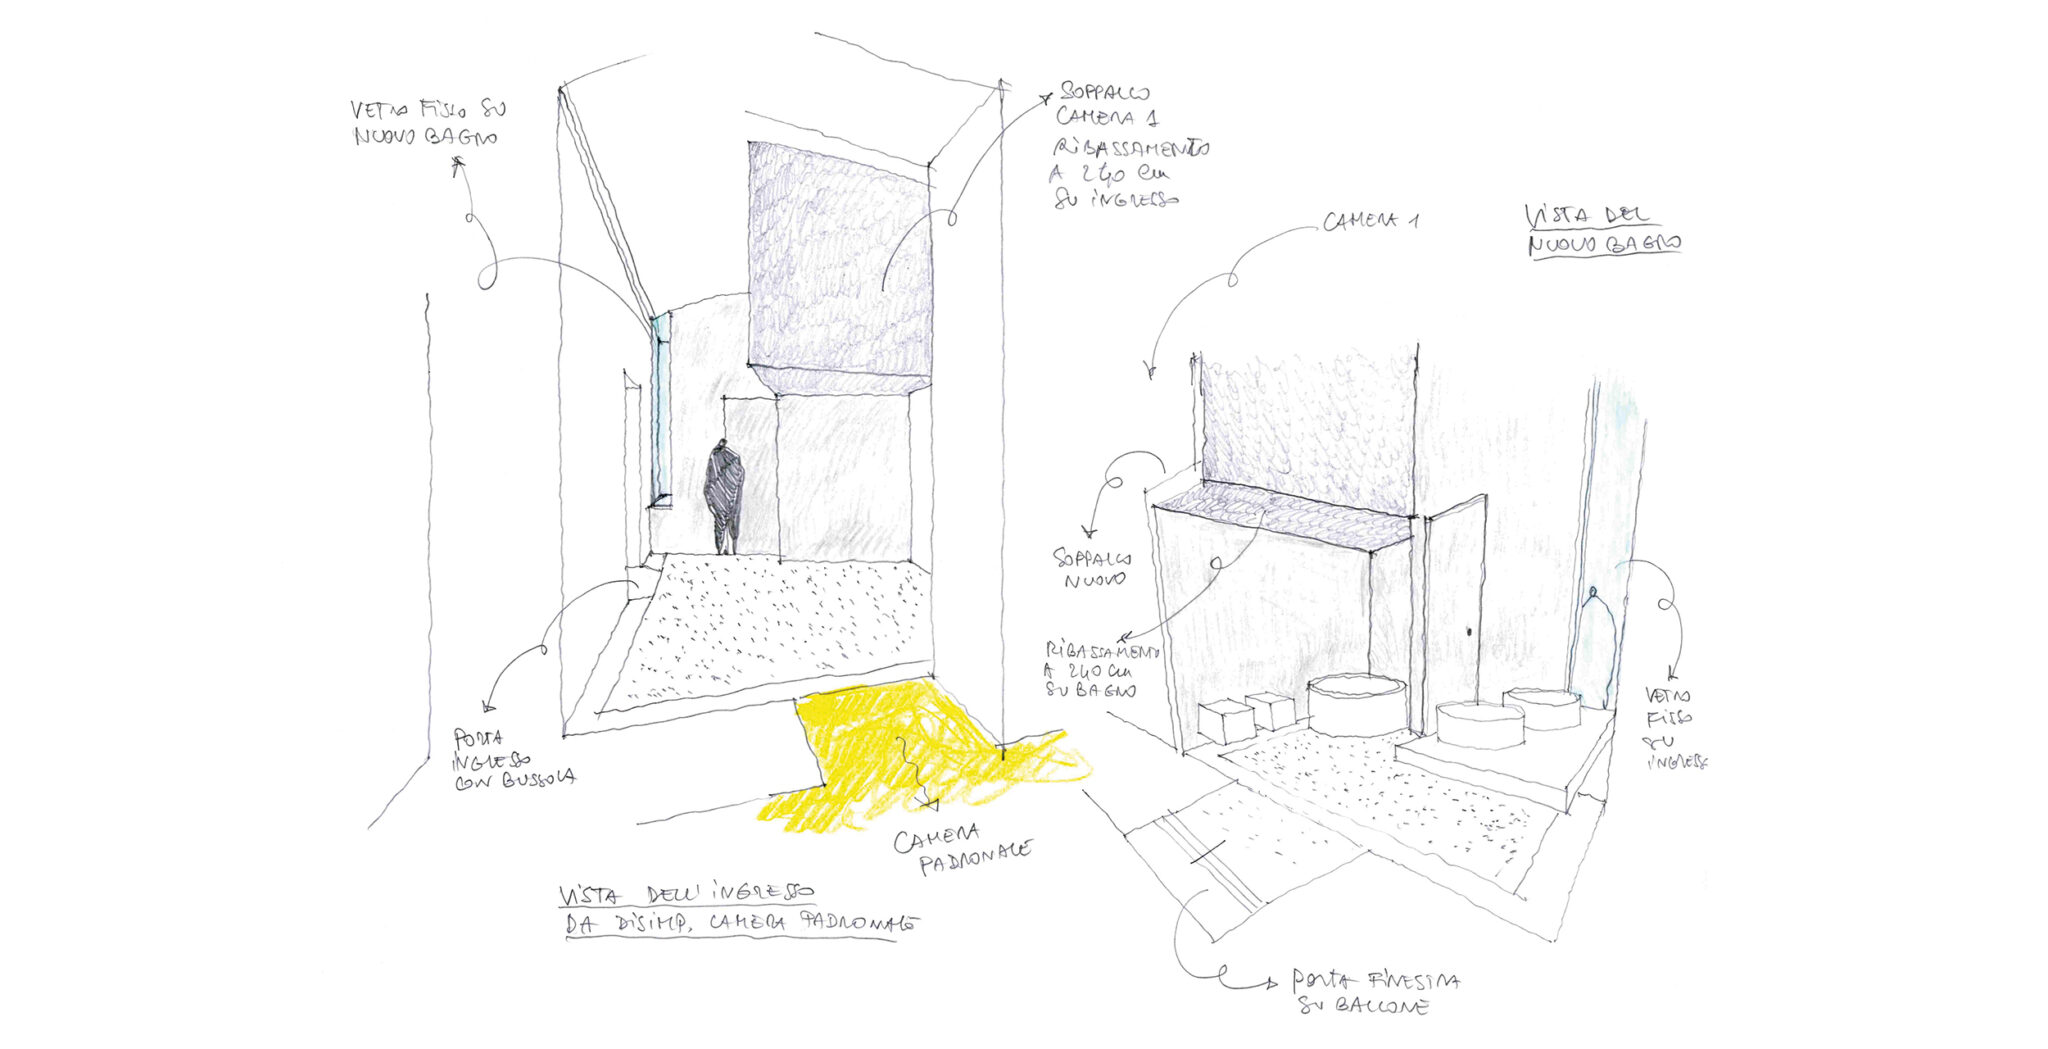 VETRO FISSO SU
NUOVO BAGNO
SOPPALCO
CAMERA 1
RIBASSAMENTO
A 240 cm
SU INGRESSO
PORTA
INGRESSO
CON BUSSOLA
CAMERA
PADRONALE
VISTA DELL'INGRESSO
DA DISIMP. CAMERA PADRONALE
VISTA DEL
NUOVO BAGNO
CAMERA 1
SOPPALCO
NUOVO
RIBASSAMENTO
A 240 cm
SU BAGNO
VETRO
FISSO
SU
INGRESSO
PORTA FINESTRA
SU BALCONE